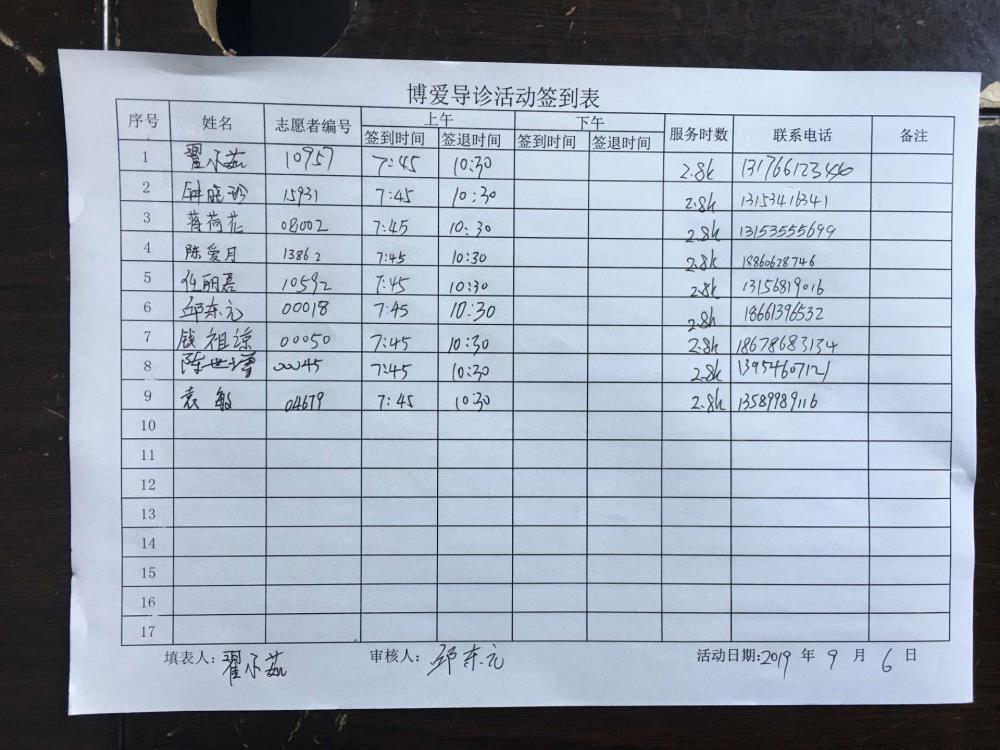 博爱导诊活动签到表
序号 姓名 志愿者编号 上午 下午 服务时数 联系电话 备注
签到时间 签退时间 签到时间 签退时间
1 翟尔茹 10957 7:45 10:30 2.8h
2 钟晓珍 15931 7:45 10:30 2.8h 13153416341
3 蒋荷花 08002 7:45 10:30 2.8h 13153555699
4 陈爱月 13862 7:45 10:30 2.8h 18860628746
5 任丽磊 10592 7:45 10:30 2.8h 13156819016
6 邱东元 00018 7:45 10:30 2.8h 18661396532
7 钱祖琼 00050 7:45 10:30 2.8h 18678683134
8 陈世增 00045 7:45 10:30 2.8h 13954607121
9 袁敏 04679 7:45 10:30 2.8h 13589989116
10
11
12
13
14
15
16
17
填表人: 翟尔茹 审核人: 邱东元 活动日期:2019 年 9 月 6 日